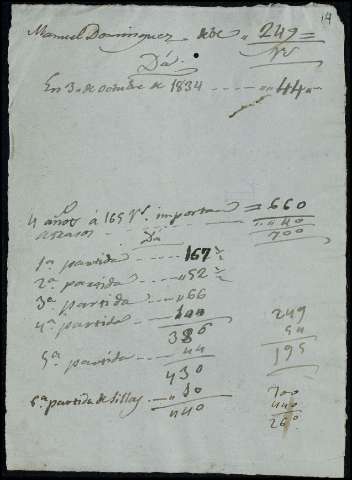 14
Manuel Dominguez debe " 249 =
Dá
En 3 de Octubre de 1834 - - - - " 44 "
4 años á 165 rs. importan = 660
atrasos - - - - " 40
700
Da
1ª partida - - - 167 ½
2ª partida - - - " 52 ½
3ª partida - - " 66
4ª partida - - 100
386
5ª partida - - - 44
430
6ª partida de sillas - - " 10
440
249
54
195
700
440
260